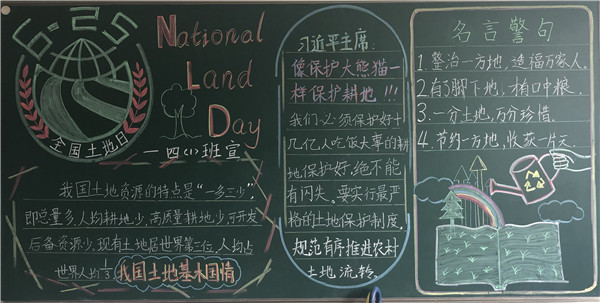 6·25
全国土地日
National
Land
Day
一四(1)班宣
我国土地资源的特点是“一多三少”,
即总量多,人均耕地少,高质量耕地少,可开发
后备资源少,现有土地居世界第三位,人均占
世界人均1/3
我国土地基本国情
习近平主席:
像保护大熊猫一
样保护耕地!!!
我们必须保护好十
几亿人吃饭大事的耕
地保护好,绝不能
有闪失。要实行最严
格的土地保护制度,
规范有序推进农村
土地流转。
名言警句
1.整治一方地,造福万家人。
2.有了脚下地,才有口中粮。
3.一分土地,万分珍惜。
4.节约一方地,收获一片天。